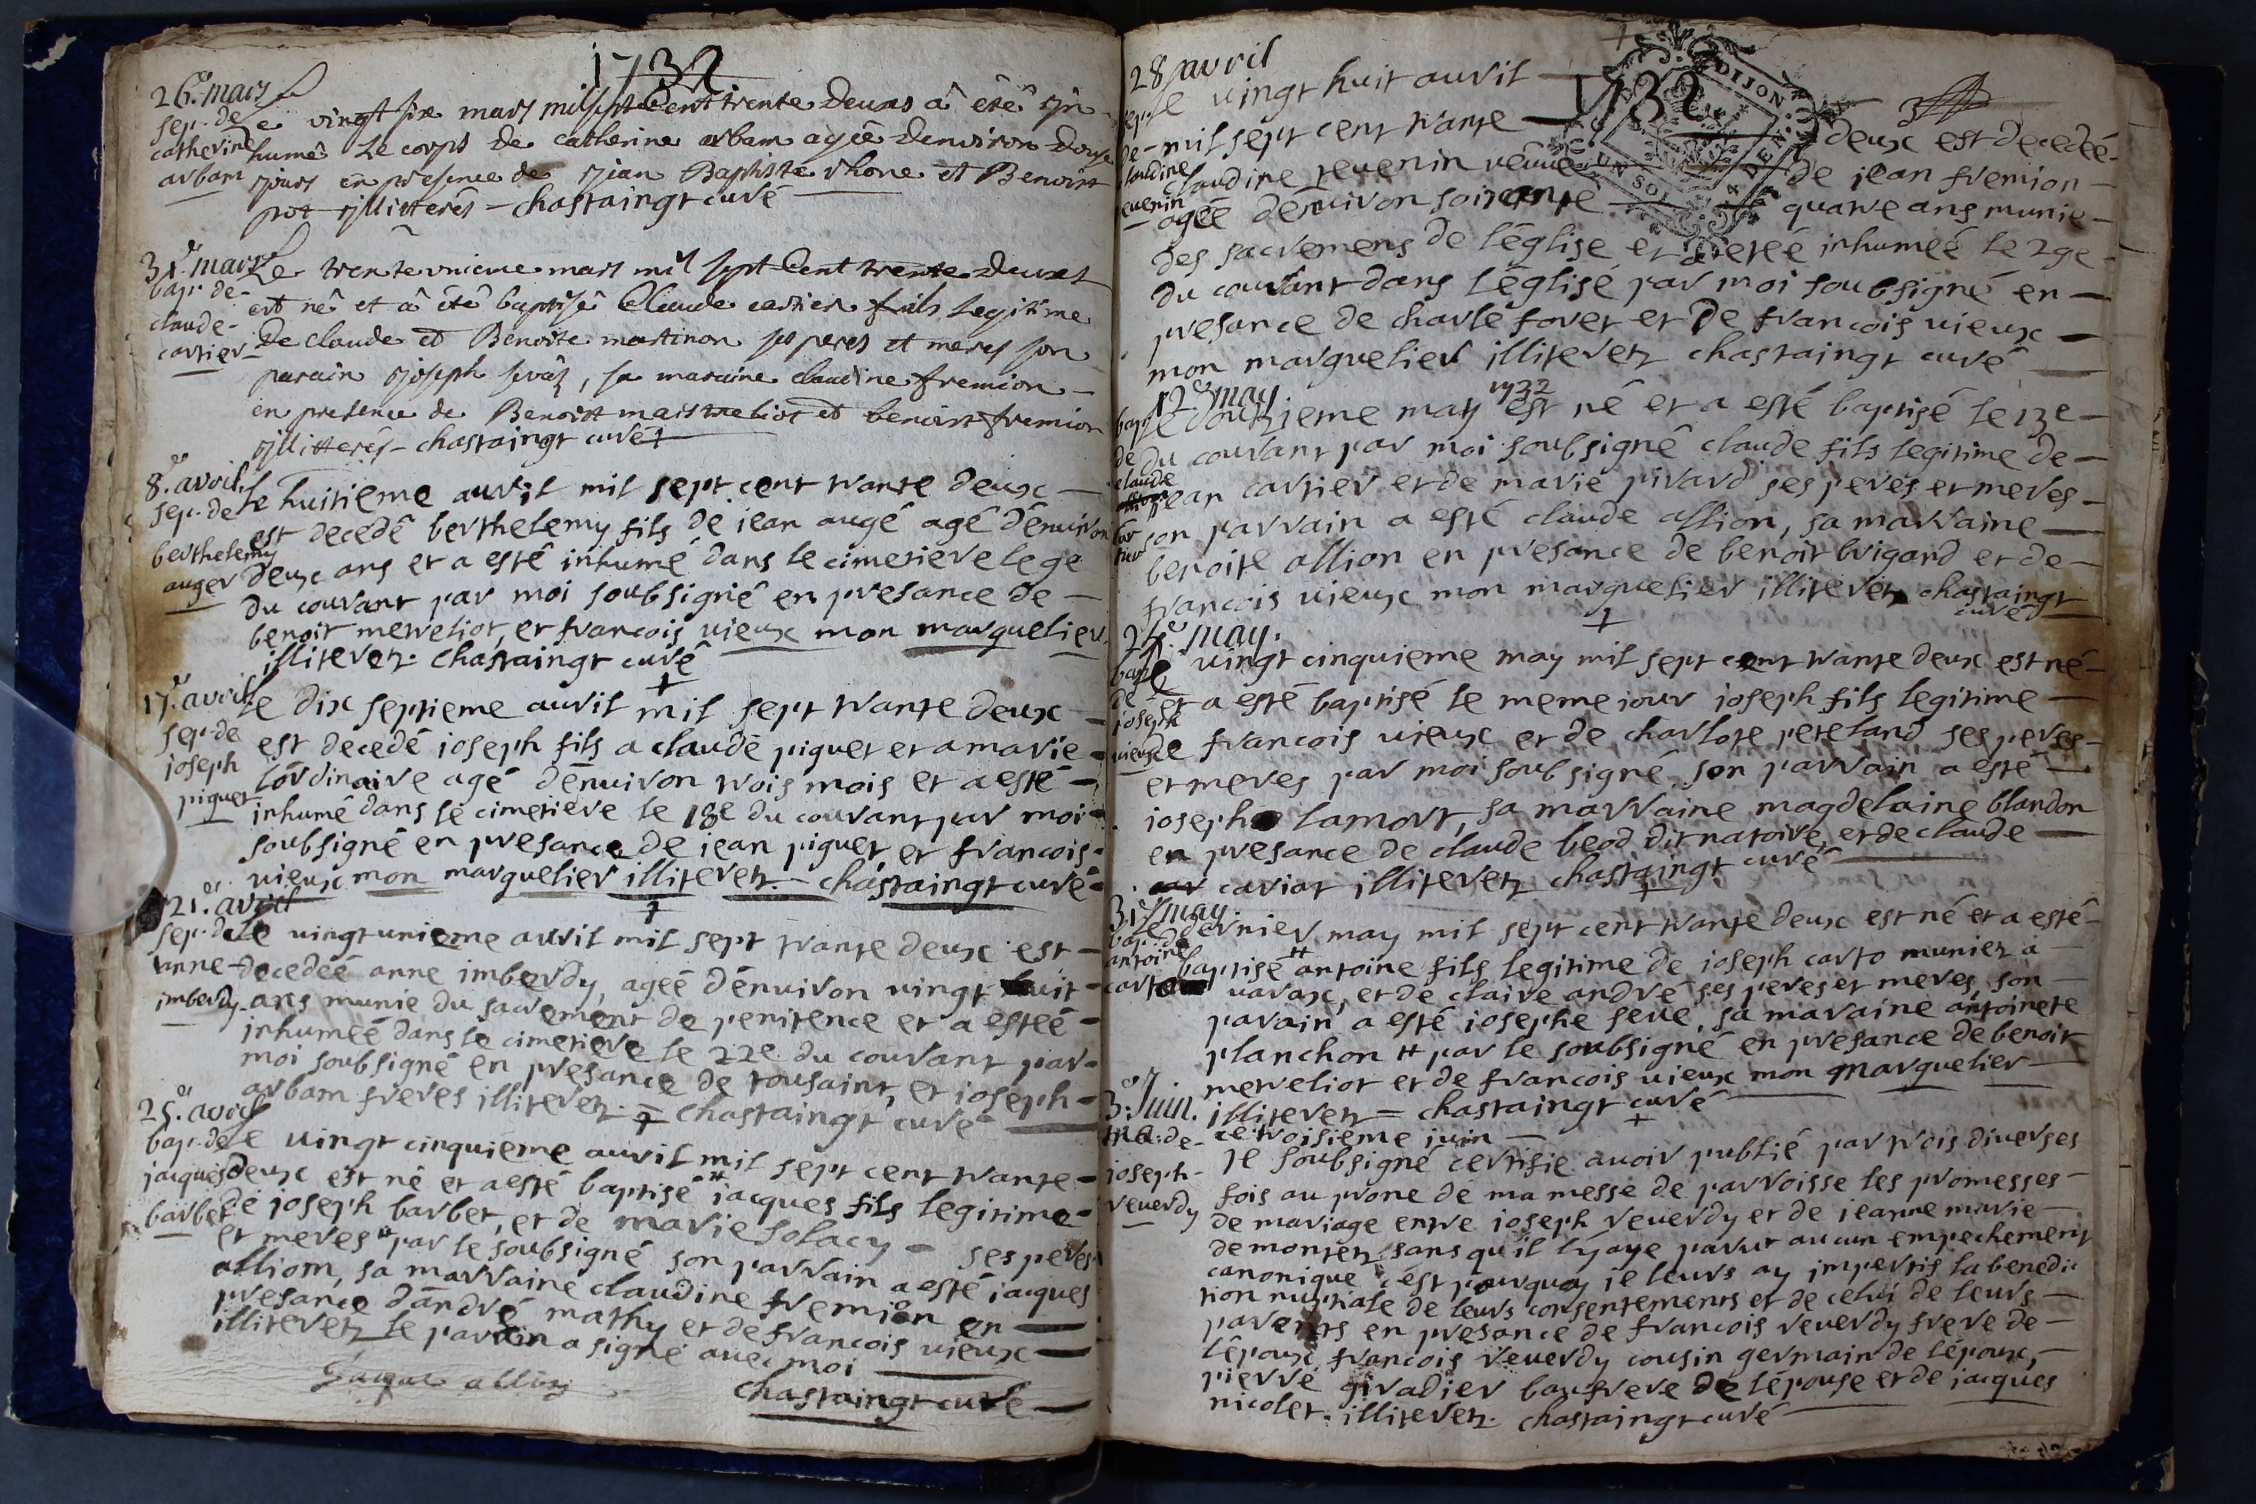 1732
26.e mars
sep. de
catherine
arbam
Le vingt six mars mil sept cent trente deuxs â été jn
humê Le corps de catherine arbam agée denviron douze
jours en presence de jean Baptiste rhone et Benoist
pot jllitterês - chastaingt curé
31.e mars
bap. de
claude
cartier
Le trentevnieme mars mil sept Cent trente deuxs
est nê et â étê baptisê Claude cartier fils Legitime
De claude et Benoite martinon ses peres et meres son
parain joseph , sa maraine claudine fremion -
en presence de Benoist mairtreliot et benoist fremion
jllitterês - chastaingt curé +
8.e avril
sep. de
berthelemy
auger
Le huitieme auvil mil sept cent trante deux -
est decedé berthelemy fils de iean augé agé dénuiron
deux ans et a esté inhumé dans le cimetiere le 9e
du courant par moi soubsigné en presance de -
benoit metreliot, et francois uieux mon marguelier
illiteretz. chastaingt curé
+
17.e avril
sep. de
joseph
piguet
Le dix septieme auvil mil sept trante deux
est decedé ioseph fils a claude piguet et a marie
lordinaire agé dénuiron trois mois et a esté
inhumé dans le cimetiere le 18e du courant par moi
soubsigné en presance de iean piguet, et francois
uieux mon marguelier illiteretz - chastaingt curé
+
21.e avril
sep. de
anne
imberdy
Le uingtunieme auvil mil sept trante deux est -
decedéé anne imberdy, agéé dénuiron uingt huit
ans munie du sacrement de penitence et a estéé
inhuméé dans le cimetiere le 22e du courant par
moi soubsigné en presance de tousaint, et ioseph
arbam freres illiteretz = chastaingt curé
+
25.e avril
bap. de
jacques
barbet
Le uingt cinquieme auvil mil sept cent trante
deux est né et a esté baptisé # iacques fils legitime
de ioseph barbet, et de marie solacy - ses peres
et meres # par le soubsigné son parrain a esté iacques
alliom, sa marraine claudine fremion en -
presance dandré mathy et de francois uieux
illiteretz le parain a signé auec moi
chastaingt curé
28 avril
sep.
de
claudine
teuenin
1732
DIJON
UN SOL
Le uingt huit auvil
mil sept cent trante deux est decedéé
claudine teuenin ueuue de iean fremion -
agéé dénuiron soixante quatre ans munie -
des sacremens de léglise et a etéé inhuméé le 29e
du courant dans léglise par moi soubsigné en -
presance de charle foret et de francois uieux -
mon marguelier illiteretz chastaingt curé
12.e may
bap.
de
claude
cartier
Le douzieme may 1732 est né et a esté baptisé le 13e -
du courant par moi soubsigné claude fils legitime de -
iean cartier et de marie pivard ses peres et meres -
son parrain a esté claude allion, sa marraine -
benoite allion en presance de benoit brigard et de -
francois uieux mon marguelier illiteretz chastaingt
curé
+
25.e may.
bap.
de
joseph
uieux
Le uingt cinquieme may mil sept cent trante deux est né -
et a esté baptisé le meme iour ioseph fils legitime -
de francois uieux et de charlote peteland ses peres -
et meres par moi soubsigné son parrain a esté -
ioseph lamort, sa marraine magdelaine blandon
en presance de claude beod dit natoire, et de claude -
cariat illiteretz chastaingt curé
+
31.e may.
bap. de
antoine
carto
Le dernier may mil sept cent trante deux est né et a esté -
baptisé # antoine fils legitime de ioseph carto munier a -
uarax, et de claire andre ses peres et meres, son -
parain a esté iosephe seue, sa maraine antoinete
planchon # par le soubsigné en presance de benoit
metreliot et de francois uieux mon marguelier -
illiteretz = chastaingt curé
+
3.e Juin.
ma: de
joseph
reuerdy
ce troisieme iuin -
Je soubsigné certifie auoir publié par trois diuerses
fois au prone de ma messe de parroisse les promesses -
de mariage entre ioseph reuerdy et de ieanne marie -
demontetz, sans qu il ly aye parut aucun empechement
canonique c'est pourquoy ie leurs ay impertis la benedic
tion nuptiale de leurs consentements et de celui de leurs -
parents en presance de francois reuerdy frere de -
lépoux, francois reuerdy cousin germain de lépoux, -
pierre givadier baufrere de lépouse et de iacques
nicolet. illiteretz. chastaingt curé